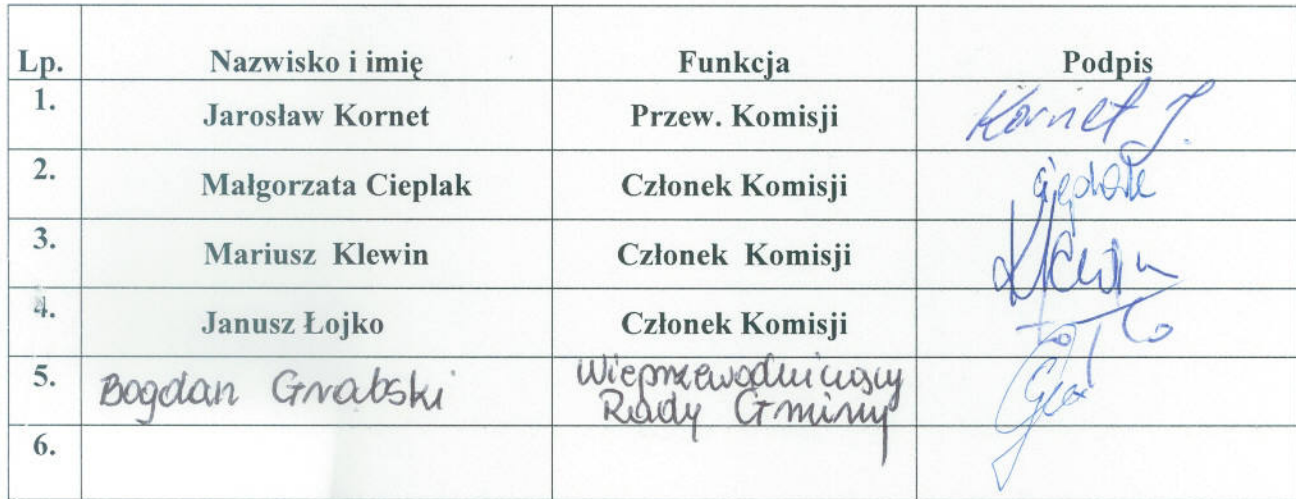 Lp. Nazwisko i imię Funkcja Podpis
1. Jarosław Kornet Przew. Komisji Kornet J.
2. Małgorzata Cieplak Członek Komisji
3. Mariusz Klewin Członek Komisji
4. Janusz Łojko Członek Komisji
5. Bogdan Grabski Wiceprzewodniczący
Rady Gminy
6.